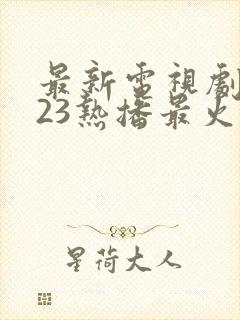 最新電視劇
23熱播最火
星荷大人